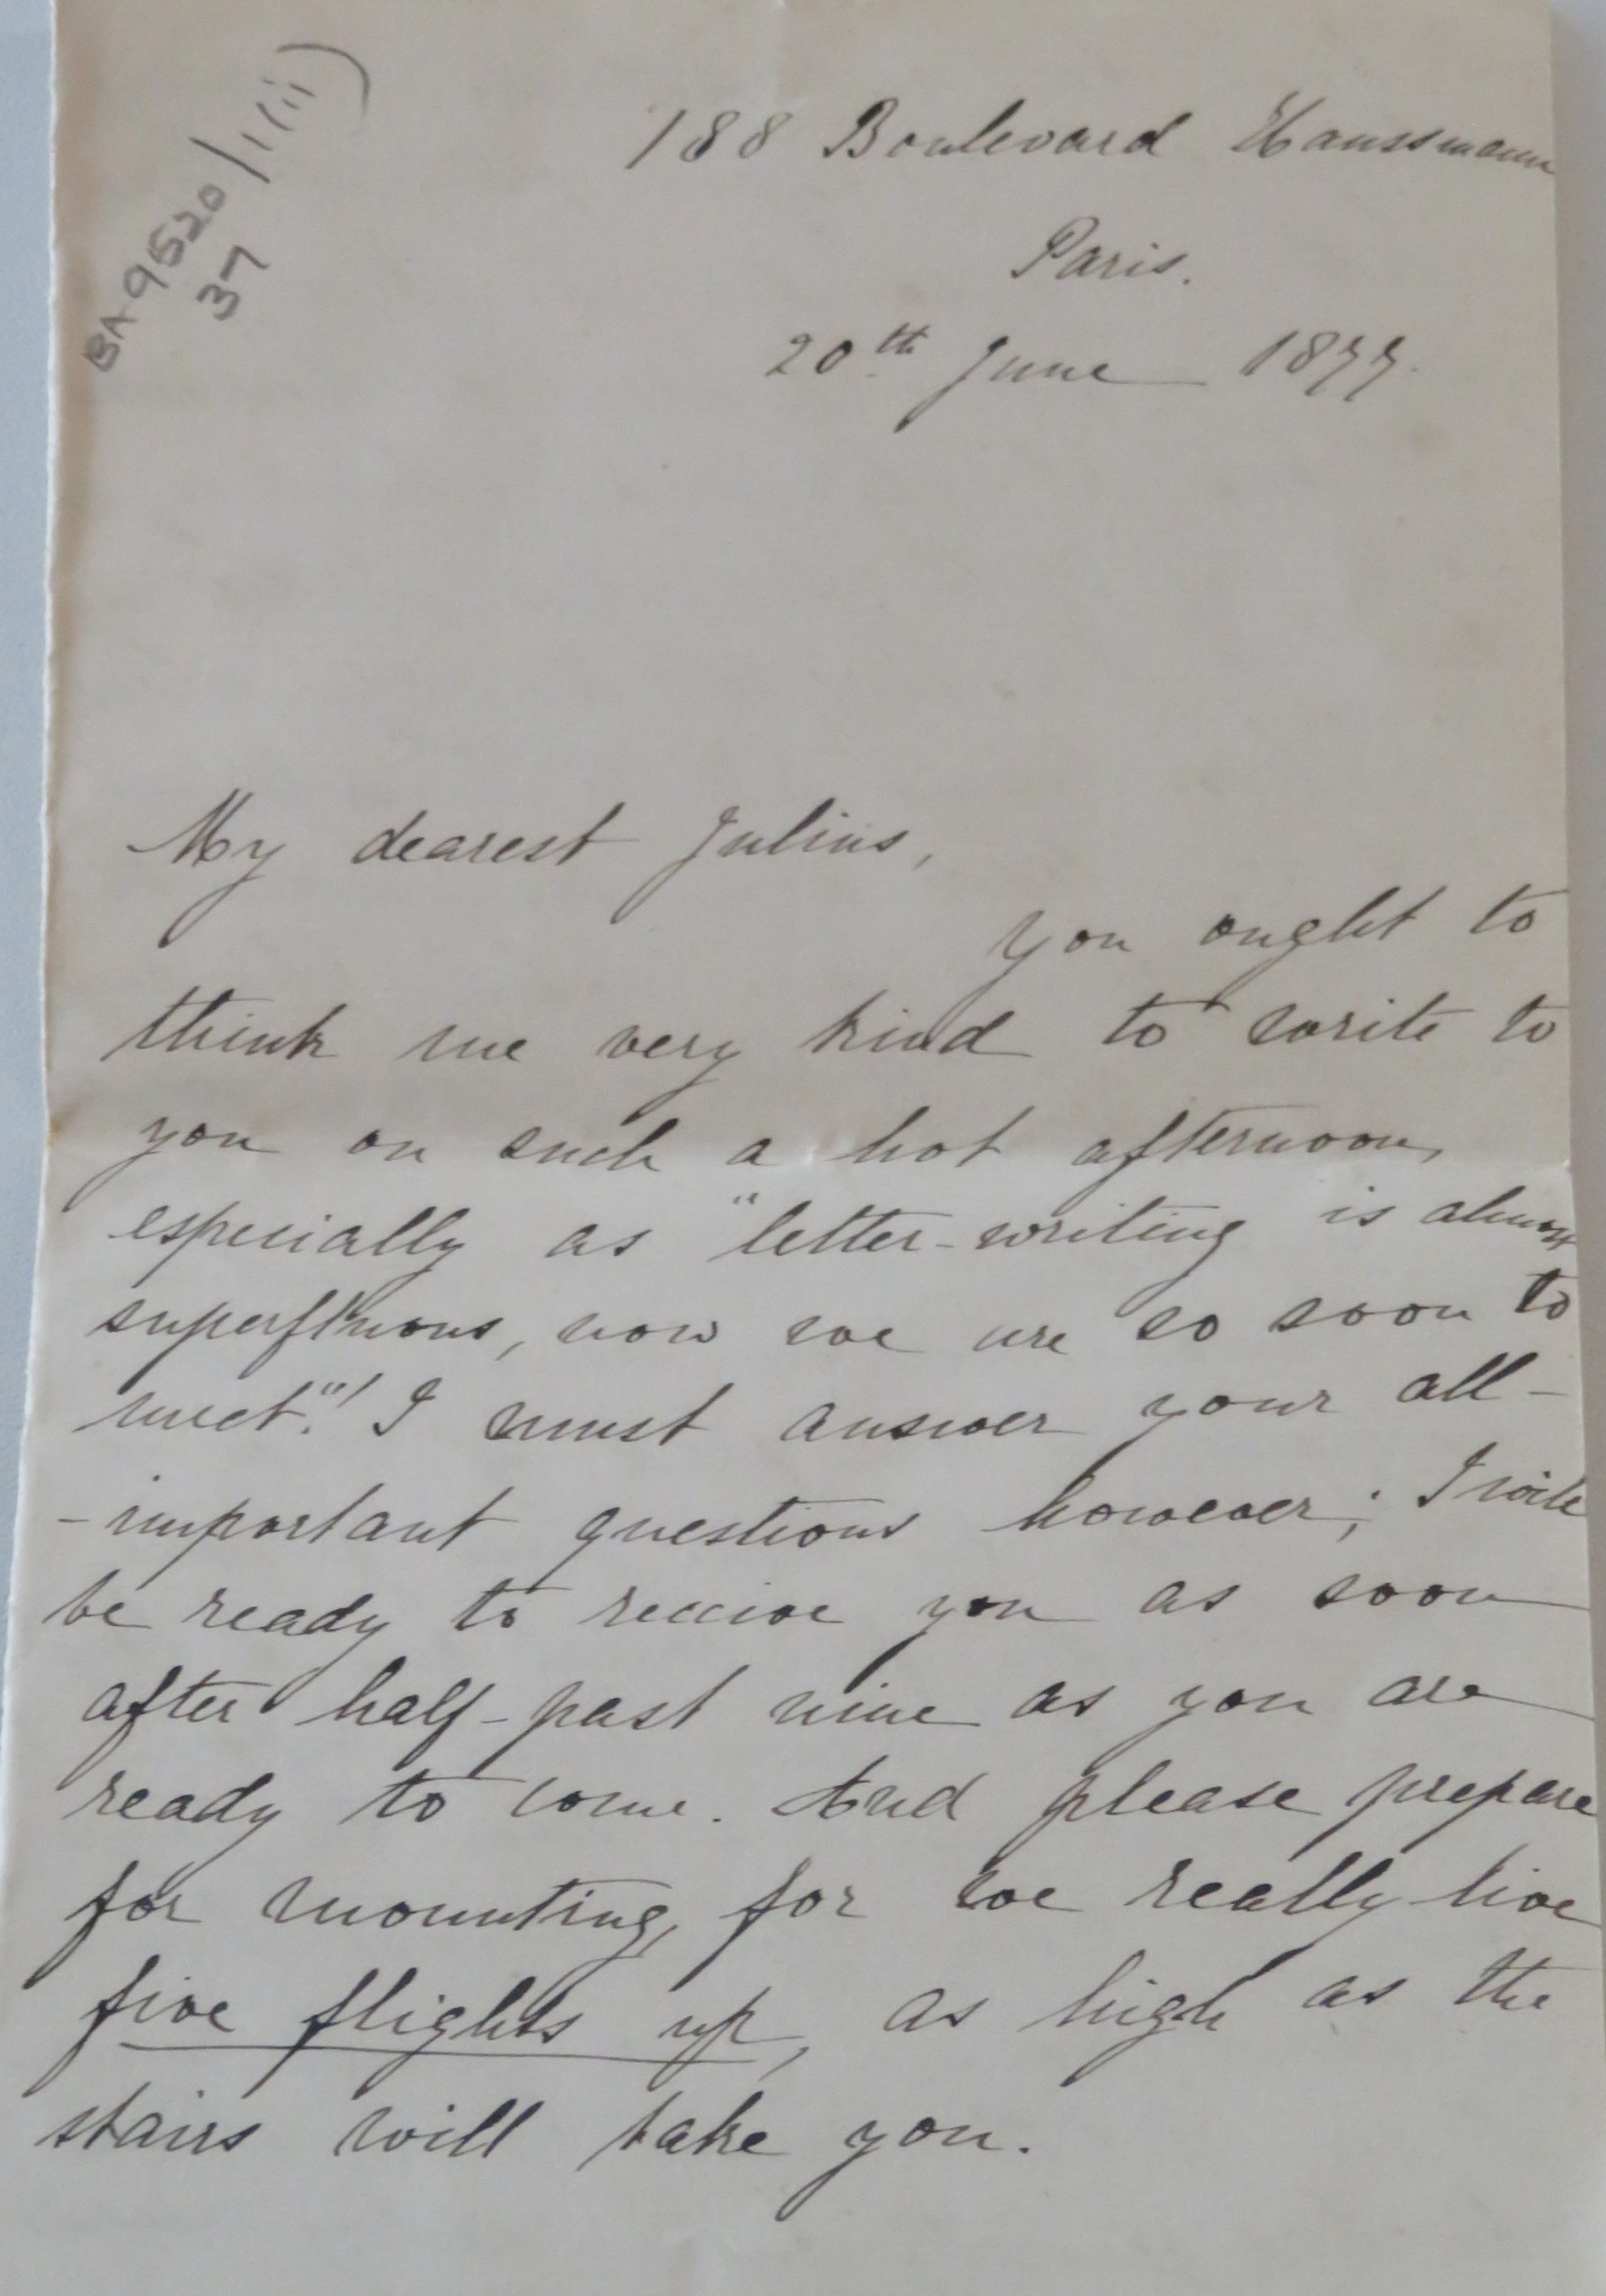 BA 9520/1(ii)
37
188 Boulevard Haussmann
Paris.
20th June 1877.
My dearest Julius,
you ought to
think me very kind to write to
you on such a hot afternoon,
especially as "letter-writing is almost
superfluous, now we are so soon to
meet."! I must answer your all-
-important questions however; I will
be ready to receive you as soon
after half-past nine as you are
ready to come. And please prepare
for mounting, for we really live
five flights up, as high as the
stairs will take you.